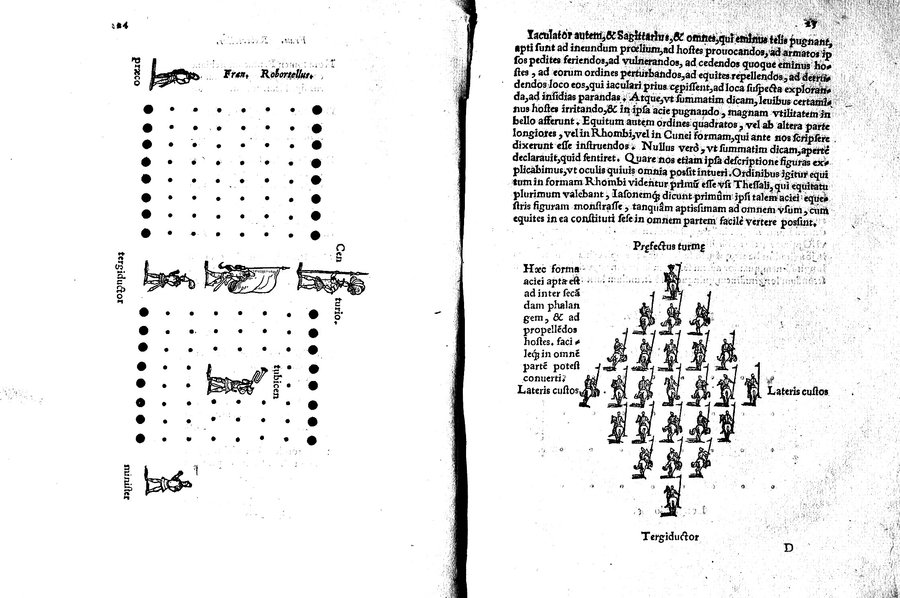 24
Fran. Robortellus.
præco
tergiductor
Cen
turio.
tubicen
minister
25
Iaculator autem, & Sagittarius, & omnes, qui eminus telis pugnant,
apti sunt ad ineundum prœlium, ad hostes prouocandos, ad armatos ip
sos pedites feriendos, ad vulnerandos, ad cedendos quoque eminus ho-
stes, ad eorum ordines perturbandos, ad equites repellendos, ad detru
dendos loco eos, qui iaculari prius cępissent, ad loca suspecta exploran-
da, ad insidias parandas. Atque, vt summatim dicam, leuibus certami-
nus hostes irritando, & in ipsa acie pugnando, magnam vtilitatem in
bello afferunt. Equitum autem ordines quadratos, vel ab altera parte
longiores, vel in Rhombi, vel in Cunei formam, qui ante nos scripsere
dixerunt esse instruendos. Nullus verò, vt summatim dicam, apertè
declarauit, quid sentiret. Quare nos etiam ipsa descriptione figuras ex-
plicabimus, vt oculis quiuis omnia possit intueri. Ordinibus igitur equi
tum in formam Rhombi videntur primū esse vsi Thessali, qui equitatu
plurimum valebant, Iasonemq; dicunt primùm ipsi talem aciei eque-
stris figuram monstrasse, tanquàm aptissimam ad omnem vsum, cum
equites in ea constituti sese in omnem partem facilè vertere possint.
Pręfectus turmę
Hæc forma
aciei apta est
ad inter secā
dam phalan
gem, & ad
propellēdos
hostes. faci-
leq; in omnē
partē potest
conuerti.
Lateris custos
Lateris custos
Tergiductor
D